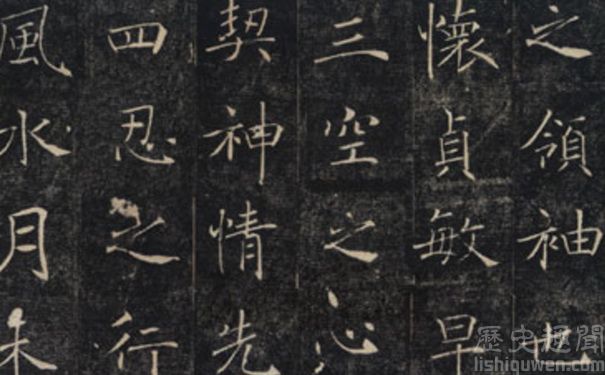 之領袖也
懷貞敏早
三空之心
契神情先
四忍之行
風水月未
歷史趣聞
lishiquwen.com